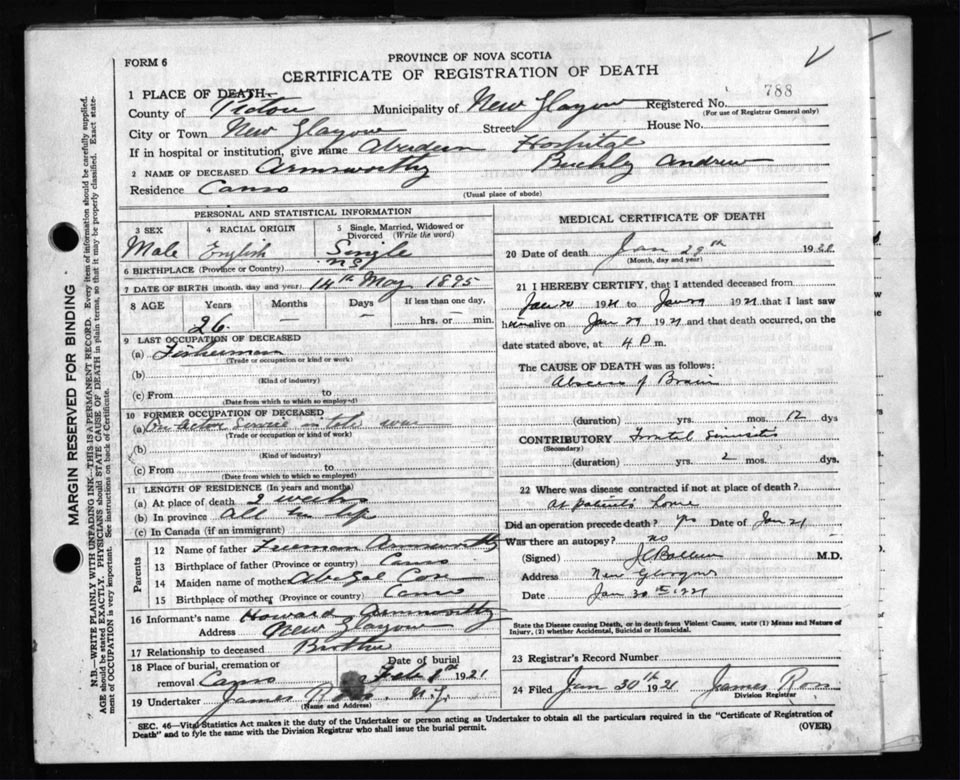 FORM 6
PROVINCE OF NOVA SCOTIA
CERTIFICATE OF REGISTRATION OF DEATH
788
1 PLACE OF DEATH—
County of Pictou Municipality of New Glasgow Registered No.
(For use of Registrar General only)
City or Town New Glasgow Street House No.
If in hospital or institution, give name Aberdeen Hospital
2 NAME OF DECEASED Armsworthy Buckly Andrew
Residence Canso
(Usual place of abode)
PERSONAL AND STATISTICAL INFORMATION
3 SEX 4 RACIAL ORIGIN 5 Single, Married, Widowed or Divorced (Write the word)
Male English Single
6 BIRTHPLACE (Province or Country) N.S.
7 DATE OF BIRTH (month, day and year) 14th May 1895
8 AGE Years Months Days If less than one day,
26 — — hrs. or min.
9 LAST OCCUPATION OF DECEASED
(a) Fisherman
(Trade or occupation or kind of work)
(b)
(Kind of industry)
(c) From to
(Date from which to which so employed)
10 FORMER OCCUPATION OF DECEASED
(a) On Active Service in late war
(Trade or occupation or kind of work)
(b)
(Kind of industry)
(c) From to
(Date from which to which so employed)
11 LENGTH OF RESIDENCE (In years and months)
(a) At place of death 2 weeks
(b) In province all his life
(c) In Canada (if an immigrant)
Parents
12 Name of father Freeman Armsworthy
13 Birthplace of father (Province or country) Canso
14 Maiden name of mother
15 Birthplace of mother (Province or country) Canso
16 Informant's name Howard Armsworthy
Address New Glasgow
17 Relationship to deceased Brother
18 Place of burial, cremation or removal Canso
Date of burial 1921
19 Undertaker James Ross N.G.
(Name and Address)
MEDICAL CERTIFICATE OF DEATH
20 Date of death Jan 19
(Month, day and year)
21 I HEREBY CERTIFY, that I attended deceased from
Jan 20 1921 to Jan 29 1921 that I last saw
him alive on Jan 29 1921 and that death occurred, on
date stated above, at 4 P.m.
The CAUSE OF DEATH was as follows:
Abscess of Brain
(duration) yrs. mos. 12 dys
CONTRIBUTORY Frontal Sinusitis
(Secondary)
(duration) yrs. 2 mos. dys.
22 Where was disease contracted if not at place of death?
at patients home
Did an operation precede death? yes Date of Jan 21
Was there an autopsy? no
(Signed) M.D.
Address New Glasgow
Date Jan 30th 1921
State the Disease causing Death, or in death from Violent Causes, state (1) Means and Nature of Injury, (2) whether Accidental, Suicidal or Homicidal.
23 Registrar's Record Number
24 Filed Jan 30th 1921 James Ross
Division Registrar
SEC. 46—Vital Statistics Act makes it the duty of the Undertaker or person acting as Undertaker to obtain all the particulars required in the "Certificate of Registration of
Death" and to fyle the same with the Division Registrar who shall issue the burial permit.
(OVER)
MARGIN RESERVED FOR BINDING
N.B.—WRITE PLAINLY WITH UNFADING INK—THIS IS A PERMANENT RECORD. Every item of information should be carefully supplied.
AGE should be stated EXACTLY. PHYSICIANS should STATE CAUSE OF DEATH in plain terms, so that it may be properly classified. Exact statement of OCCUPATION is very important. See instructions on back of Certificate.